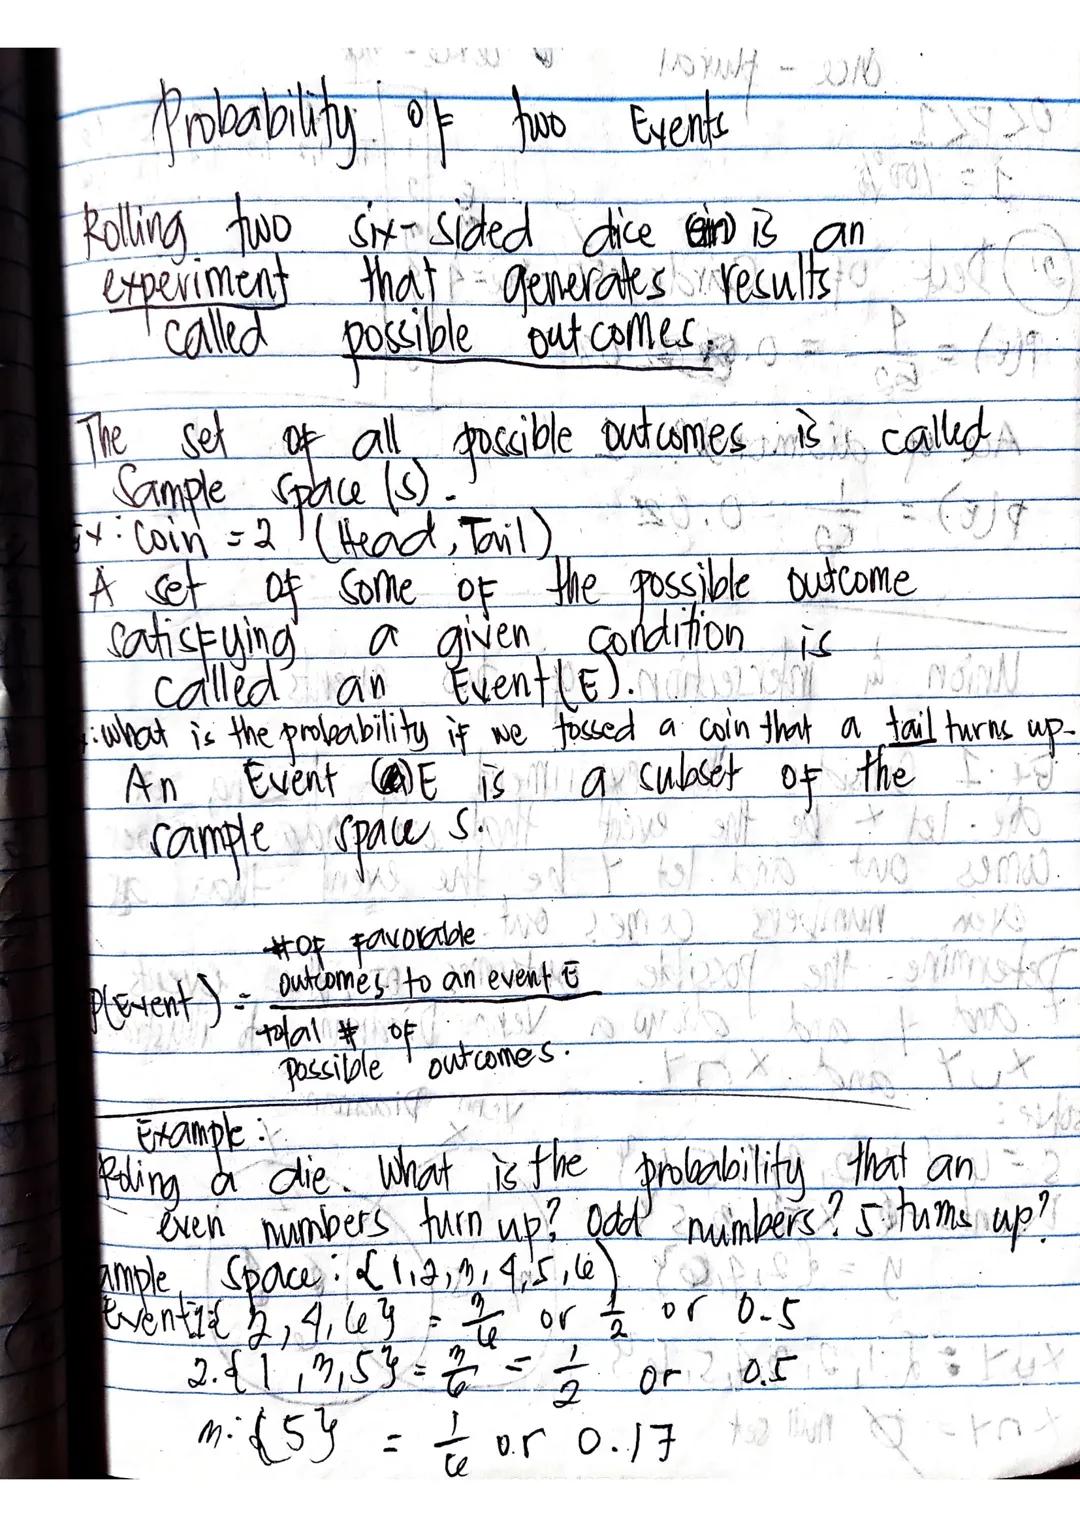 Probability of two Events
Rolling two six-sided dice is an
experiment that generates results
called possible outcomes.
The set of all possible outcomes is called
Sample space (S).
Ex: Coin = 2 (Head, Tail)
A set of some of the possible outcome
satisfying a given condition is
called an Event (E).
: what is the probability if we tossed a coin that a tail turns up.
An Event E is a subset of the
sample space S.
# of favorable
outcomes to an event E
P(Event) =
total # of
possible outcomes.
Example:
Roling a die. What is the probability that an
even numbers turn up? Odd numbers? 5 turns up?
ample space: {1,2,3,4,5,6)
Event: 1.{2,4,6} = 3/6 or 1/2 or 0.5
2.{1,3,5} = 3/6 = 1/2 or 0.5
3.{5} = 1/6 or 0.17